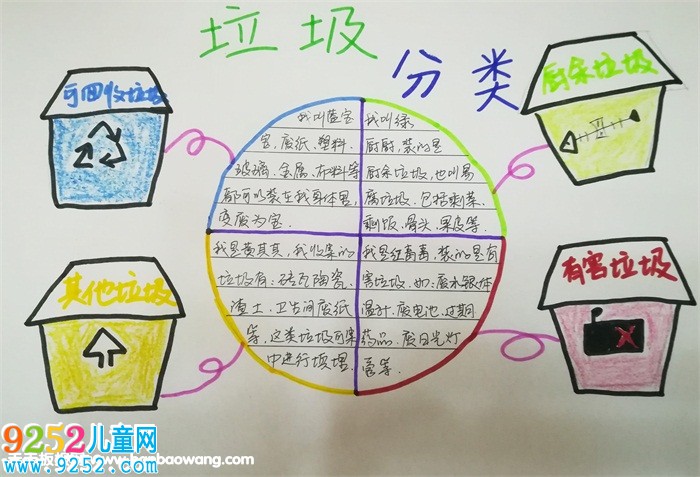 垃圾
分类
可回收垃圾
厨余垃圾
我叫蓝宝
宝,废纸、塑料、
玻璃、金属、布料等
都可以装在我身体里,
变废为宝。
我叫绿
厨厨,装的是
厨余垃圾,也叫易
腐垃圾,包括剩菜、
剩饭、骨头、果皮等。
其他垃圾
有害垃圾
我是黄其其,我收集的
垃圾有:砖瓦陶瓷、
渣土、卫生间废纸
等,这类垃圾可集
中进行填埋。
我是红害害,装的是有
害垃圾,如:废水银体
温计、废电池、过期
药品、废日光灯
管等。
9252儿童网
www.9252.com
www.banbaowang.com